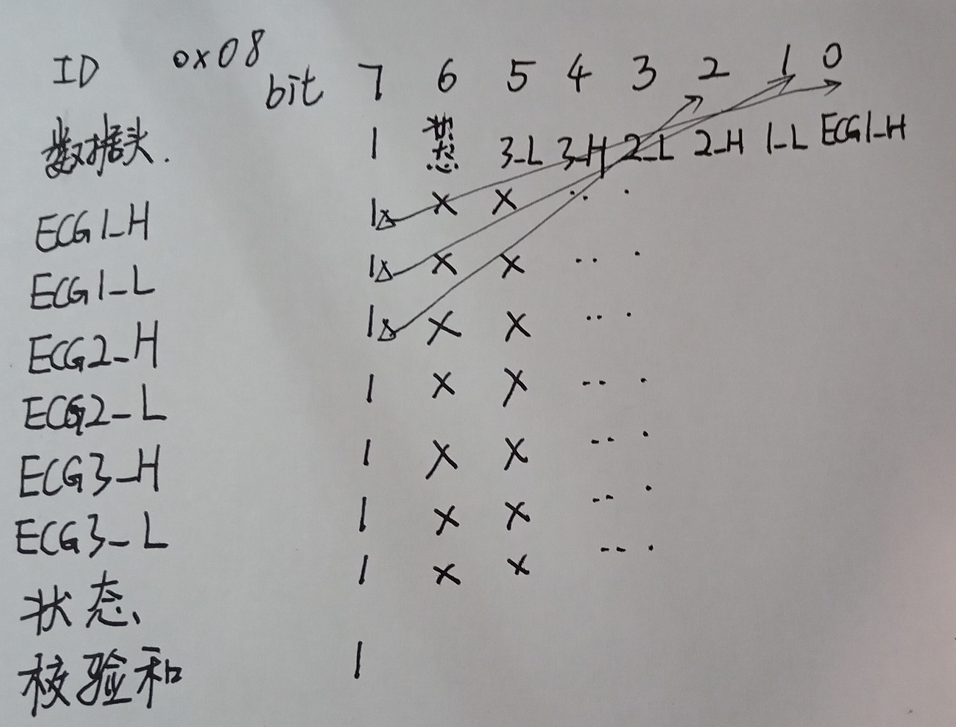 ID 0x08
bit 7 6 5 4 3 2 1 0
数据头. 1 状态 3_L 3_H 2_L 2_H 1_L ECG1_H
ECG1_H 1 x x .. .
ECG1_L 1 x x .. .
ECG2_H 1 x x .. .
ECG2_L 1 x x .. .
ECG3_H 1 x x .. .
ECG3_L 1 x x .. .
状态、 1 x x .. .
校验和 1